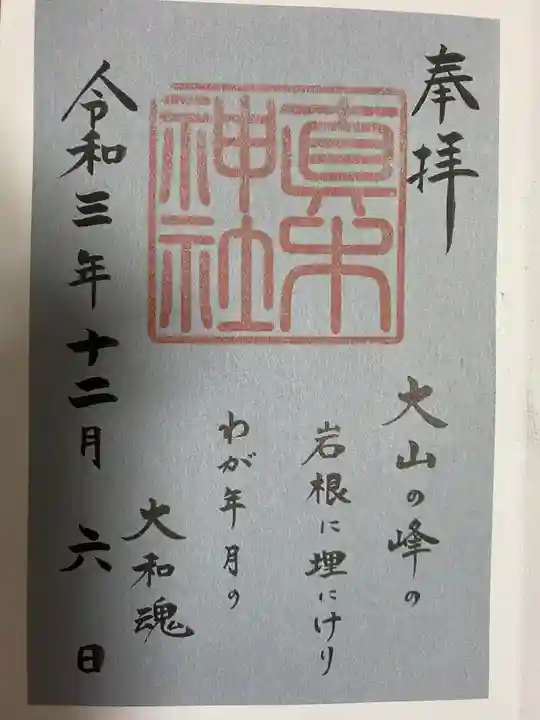 奉拝
眞木神社
大山の峰の
岩根に埋にけり
わが年月の
大和魂
令和三年十二月六日